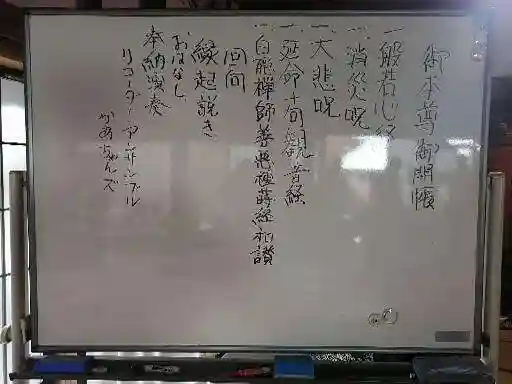 御本尊御開帳
一 般若心経
一 消災呪
一 大悲呪
一 延命十句観音経
一 白隠禅師善悪種蒔鏡和讃
回向
縁起説き
おはなし
奉納演奏
リコーターアンサンブル
かあちゃんズ